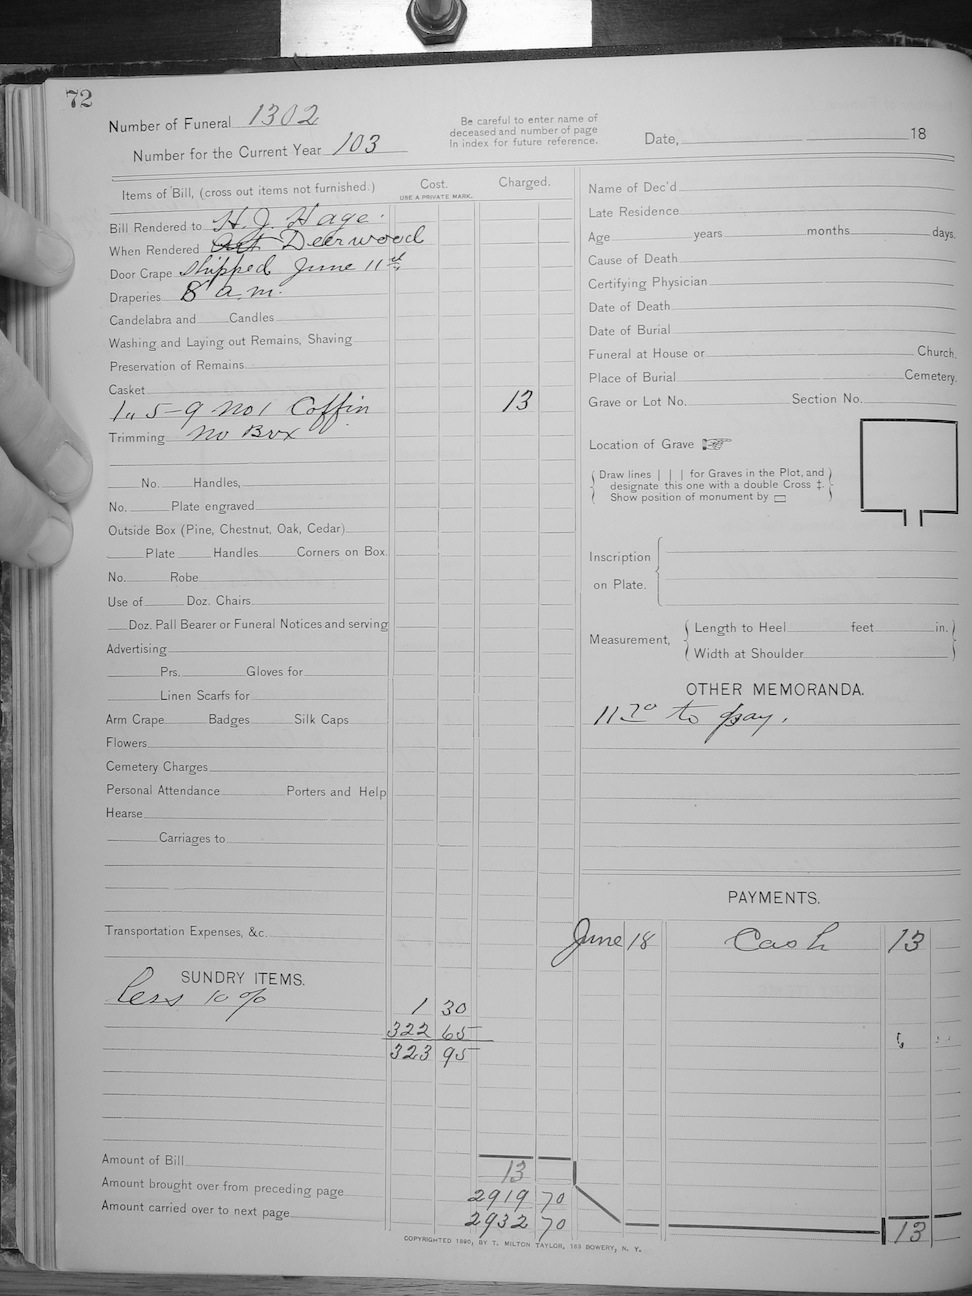 72
Number of Funeral 1302
Number for the Current Year 103
Be careful to enter name of
deceased and number of page
In index for future reference.
Date, 18
Items of Bill, (cross out items not furnished.)
Cost.
USE A PRIVATE MARK.
Charged.
Bill Rendered to H. J. Hage.
When Rendered Deerwood
Door Crape Shipped June 11th
Draperies 8 a.m.
Candelabra and Candles
Washing and Laying out Remains, Shaving
Preservation of Remains
Casket
5-9 No 1 Coffin 13
Trimming No Box
No. Handles,
No. Plate engraved
Outside Box (Pine, Chestnut, Oak, Cedar)
Plate Handles Corners on Box
No. Robe
Use of Doz. Chairs
Doz. Pall Bearer or Funeral Notices and serving
Advertising
Prs. Gloves for
Linen Scarfs for
Arm Crape Badges Silk Caps
Flowers
Cemetery Charges
Personal Attendance Porters and Help
Hearse
Carriages to
Transportation Expenses, &c.
SUNDRY ITEMS.
less 10 % 1 30
322 65
323 95
Amount of Bill 13
Amount brought over from preceding page 2919 70
Amount carried over to next page 2932 70
Name of Dec'd
Late Residence
Age years months days.
Cause of Death
Certifying Physician
Date of Death
Date of Burial
Funeral at House or Church.
Place of Burial Cemetery.
Grave or Lot No. Section No.
Location of Grave ☞
Draw lines | | | for Graves in the Plot, and
designate this one with a double Cross ‡.
Show position of monument by ▭
Inscription
on Plate.
Measurement,
Length to Heel feet in.
Width at Shoulder
OTHER MEMORANDA.
11 70 to pay.
PAYMENTS.
June 18 Cash 13
13
COPYRIGHTED 1890, BY T. MILTON TAYLOR, 163 BOWERY, N. Y.